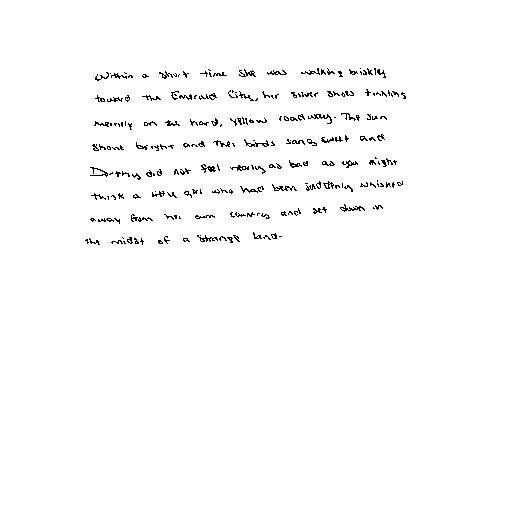 Within a short time she was walking briskly
toward the Emerald City, her silver shoes tinkling
merrily on the hard, yellow roadway. The sun
shone bright and the birds sang sweet and
Dorothy did not feel nearly as bad as you might
think a little girl who had been suddenly whisked
away from her own country and set down in
the midst of a strange land.